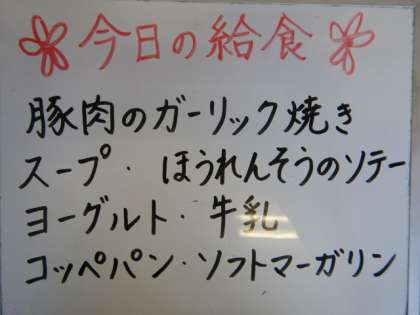 今日の給食
豚肉のガーリック焼き
スープ・ほうれんそうのソテー
ヨーグルト・牛乳
コッペパン・ソフトマーガリン